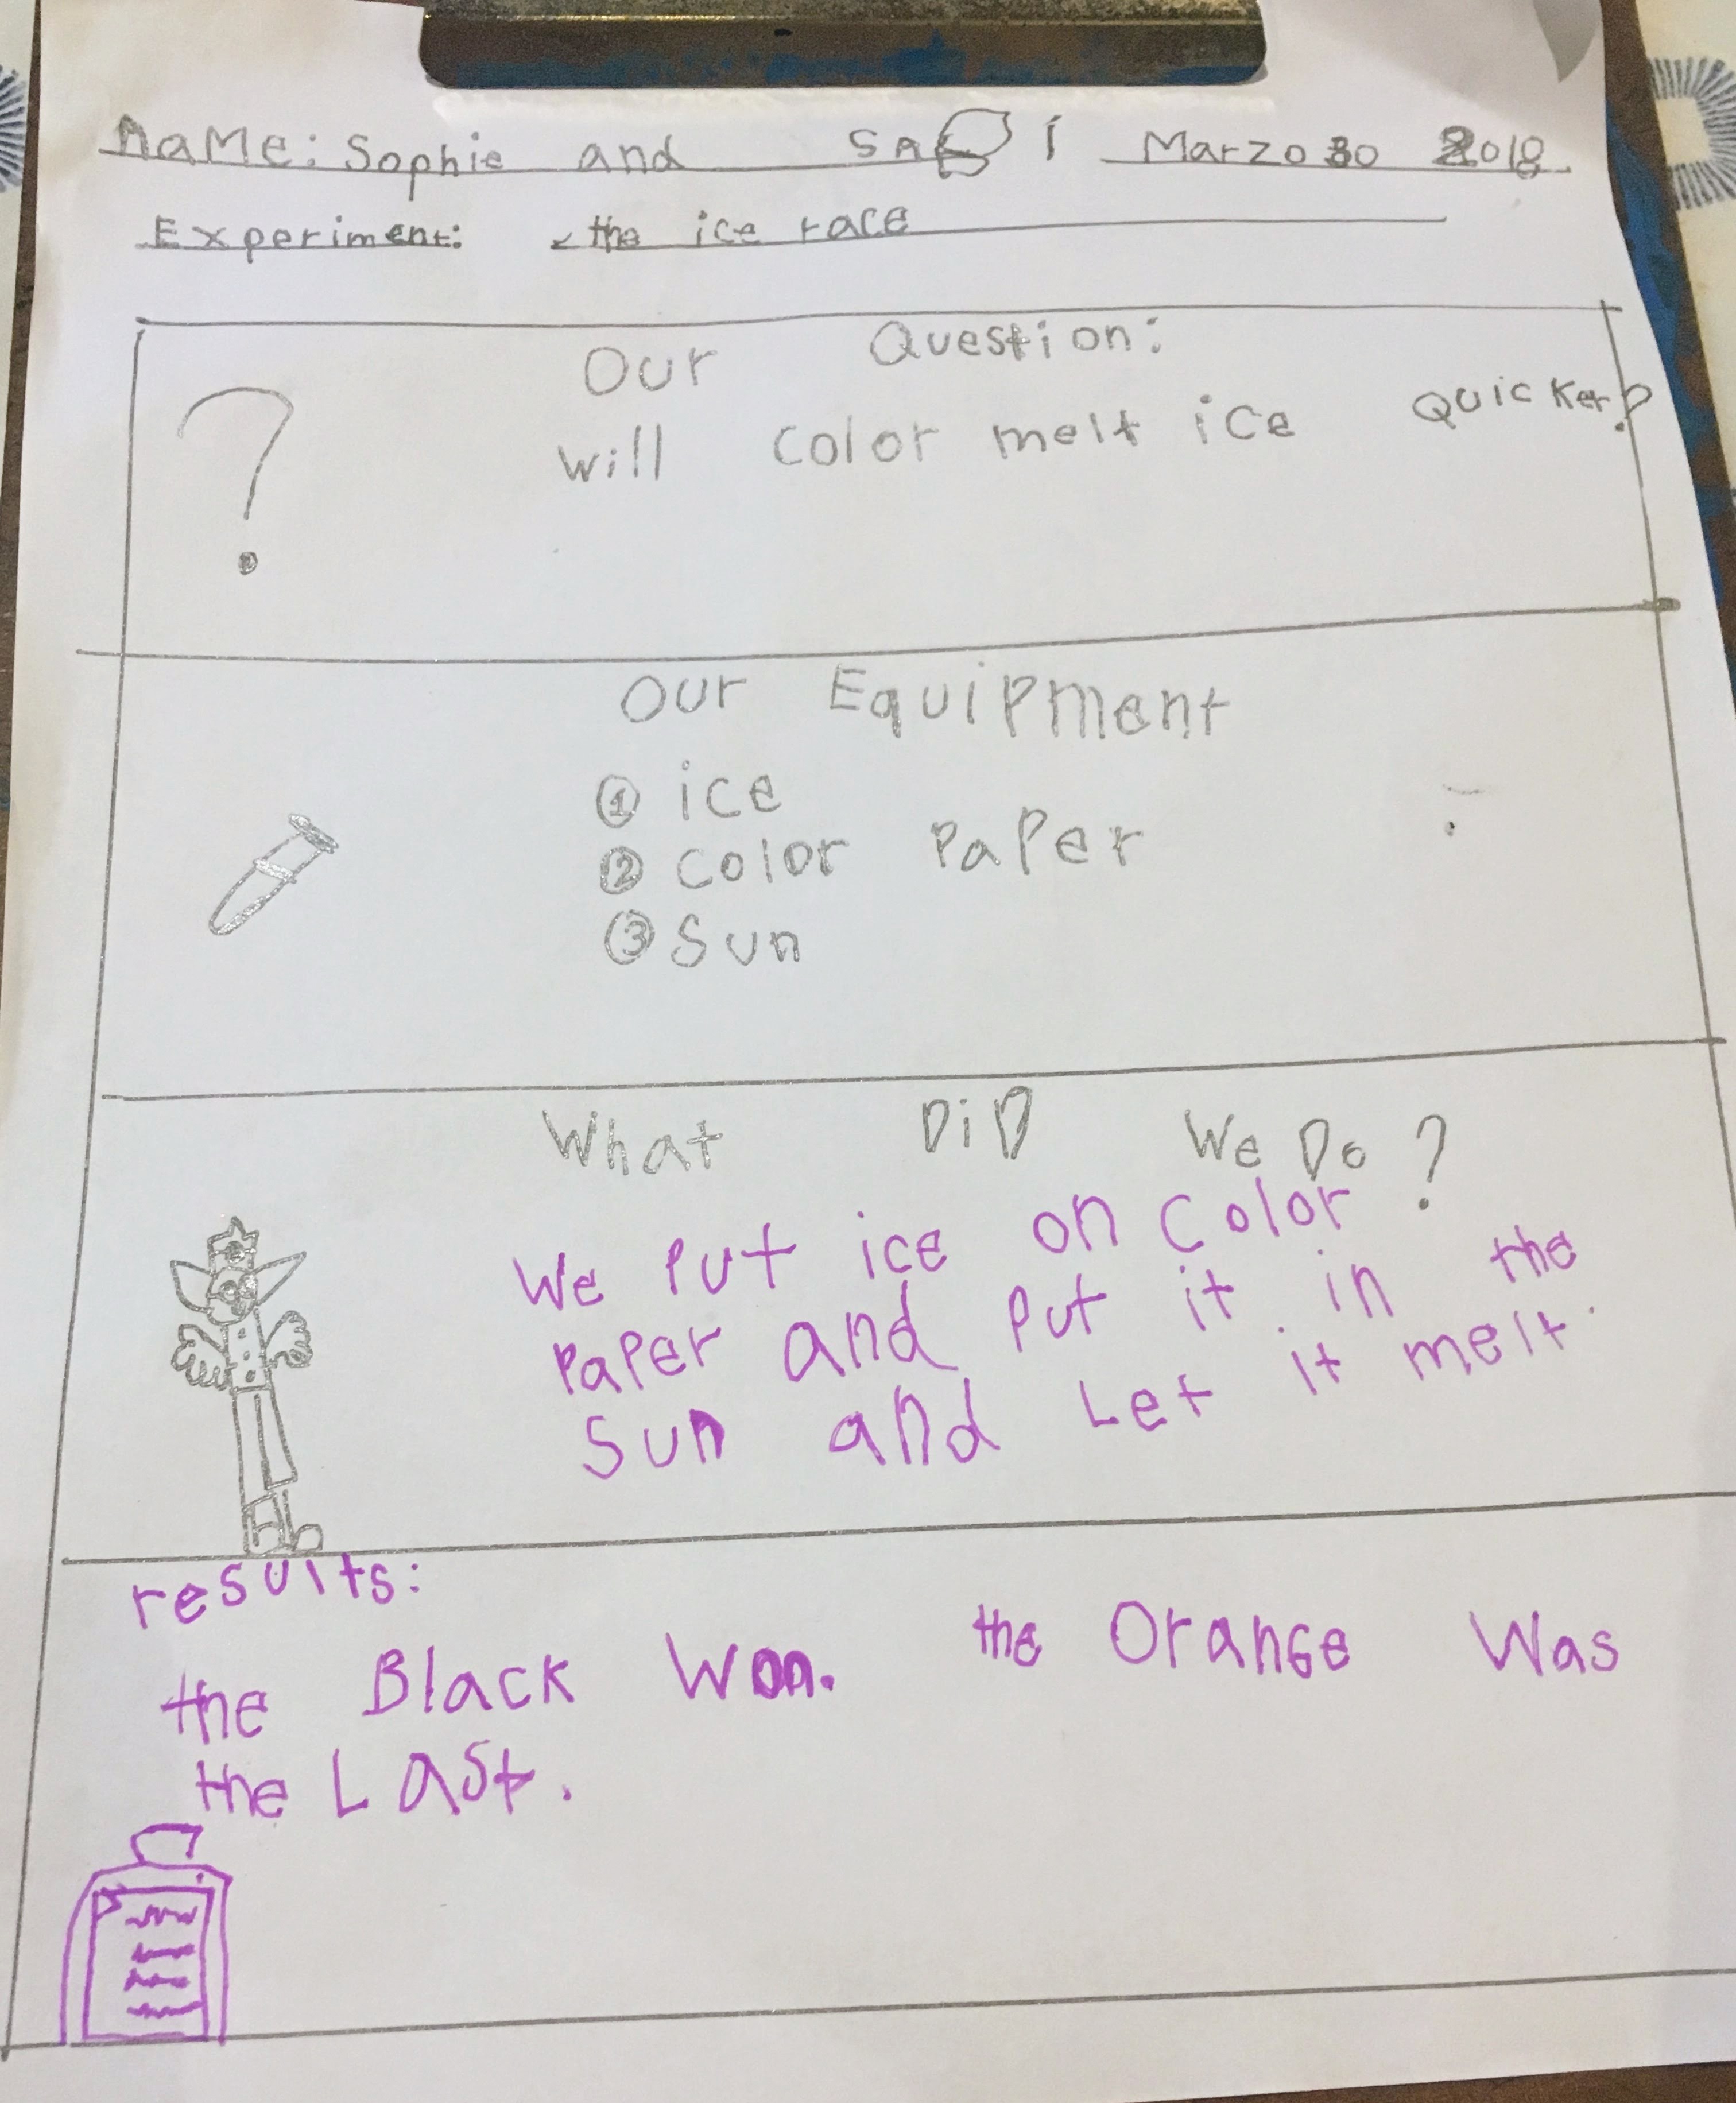 NaMe: Sophie and Marzo 30 2018
Experiment: the ice race
?
Our Question:
will color melt ice Quicker?
Our Equipment
1 ice
2 color Paper
3 Sun
What DiD We Do?
We Put ice on color
PaPer and Put it in the
Sun and Let it melt.
results:
the Black Won. the Orange Was
the Last.